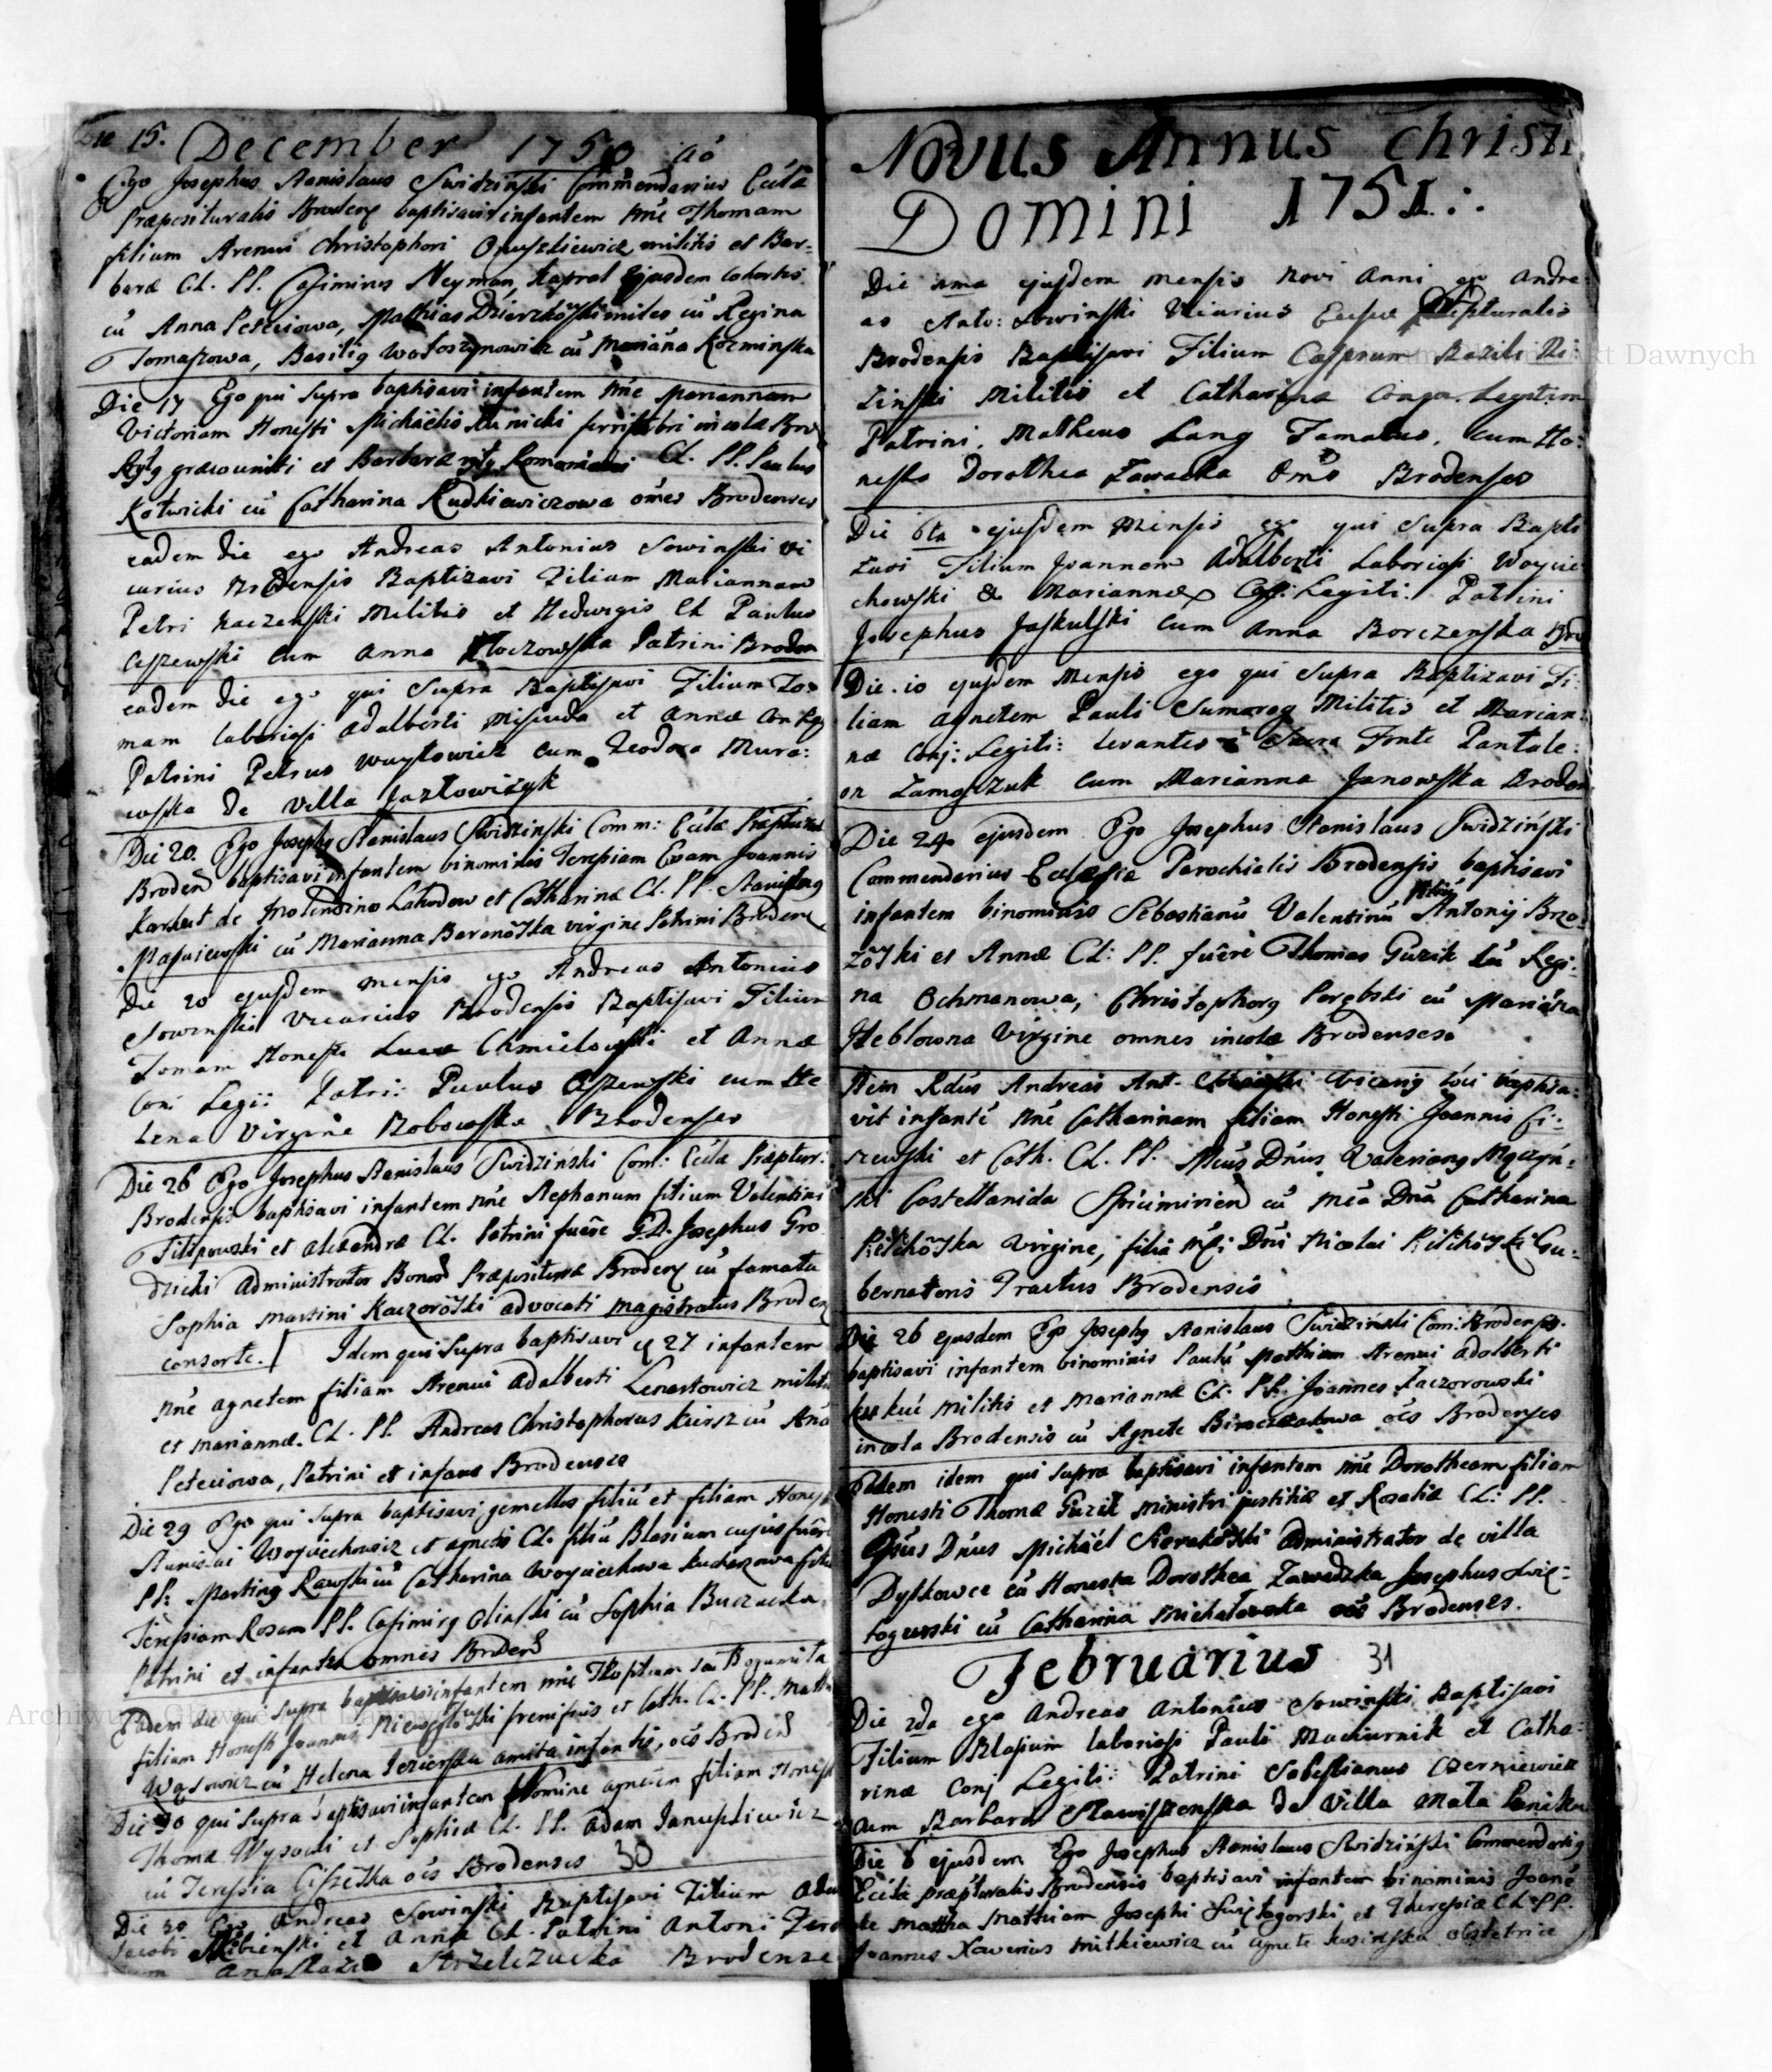 Die 15. December 1750 aō
Ego Josephus Stanislaus Swidzinski Commendarius Eccła
Præposituralis Brodenẹ baptisavi infantem nñe Thomam
filium Strenui Christophori Onuszkiewicz militis et Bar-
baræ CL. PP. Casimirus Neyman, kapral Ejusdem cohortis
cū Anna Peteciowa, Mathias Dzierzkōwski miles cū Regina
Tomaszowa, Basilig Wołoszynowicz cū Mariāna Kozminska
Die 17 Ego qui supra baptisavi infantem nñe Mariannam
Victoriam Honesti Michäelis Kunicki ferri fabri incolæ Bro
ritg græco uniti et Barbaræ ritg Romani CL. PP. Paulus
Kotwicki cū Catharina Rudkiewiczowa omes Brodenses
eadem die ego Andreas Antonius Sowinski Vi
carius Brodensis Baptizavi Filiam Mariannam
Petri Kaczenski Militis et Hedwigis CL Paulus
Ciszewski cum Anna Patrini Broden
eadem die ego qui Supra Baptisavi Filium To=
mam laboriosi Adalberti Misiuda et Annæ Conjug
Patrini Petrus Woytowicz cum Teodora Mura:
wska de Villa Jazłowczyk
Die 20. Ego Josephg Stanislaus Swidzinski Comm: Eccłæ Præpturał
Brodenṡ baptisavi infantem binominis Teresiam Evam Joannis
Karkut de Molendino Lahodow et Catharinæ CL. PP. Stanislaug
Masaiewski cū Marianna Baranōska virgine Patrini Brodenẹ
Die 20 ejusdem mensis ego Andreas Antonius
Sowinski Vicarius Brodensis Baptisavi Filium
Tomam Honesti Lucæ Chmielowski et Annæ
Coni Legi: Patri: Paulus Ciszewski cum He
lena Virgine Bobowska Brodenses
Die 26 Ego Josephus Stanislaus Swidzinski Com: Eccłæ Præptur:
Brodensis baptisavi infantem nñe Stephanum filium Valentini
Filipowski et Alexandræ CL. Patrini fuēre G.D. Josephus Gro
dzicki Administrator Bonorũ Præpositura Brodenẹ cū famata
Sophia Martini Kaczorōwski advocati magistratus Brodenẹ
consorte. Idem qui supra baptisavi 27 infantem
nñe Agnetem filiam Strenui Adalberti Lenartowicz militis
et Mariannæ. CL. PP. Andreas Christophorus Kiersz cū Anā
Peteciowa, Patrini et infans Brodenses
Die 29 Ego qui supra baptisavi gemellos filiū et filiam Honesti
Stanislai Woyciechowicz et Agnetis CL. filiū Blasium cujus fuēre
PP. Marting Rawski cū Catharina Woyciechowa Kucharzowa filiã
Teresiam Rosam PP. Casimirg Olinski cū Sophia Buczacka
Patrini et infantes omnes Brodenṡ
Eadem die qui supra baptisavi infantem nñe
filiam Honesti Joannis et Cath. CL. PP. Math
Wąsowicz cū Helena Jezierska amita infantis, oēs Brodenṡ
Die 30 qui supra baptisavi infantem Nomine Agnetem filiam Honesti
Thomæ Wysocki et Sophiæ CL. PP. Adam Januszkiewicz
cū Teressia Ciszeska oēs Brodenses 30
Die 30 Ego Andreas Sowinski Baptisavi Filium Adam
Jacobi et Annæ CL. Patrini Antoni
cum Anastazia Strzelczucka Brodense
Novus Annus Christi
Domini 1751:.
Die 1ma ejusdem mensis Novi Anni ego Andre
as Anto: Sowinski Vicarius Præpturalis
Brodensis Baptisavi Filium Casprum Bazili
zinski Militis et Catharinæ Conju. Legitim
Patrini. Matheus Lang Famatus. cum Ho:
nesta Dorothea Zawacka Oms Brodenses
Die 6ta ejusdem Mensis ego qui Supra Bapti
zavi Filium Joannem Adalberti Laboriosi Woycie
chowski & Mariannæ Legiti: Patrini
Josephus Jaskulski cum Anna Borczenska Bro
Die 10 ejusdem Mensis ego qui Supra Baptizavi Fi:
liam Agnetem Pauli Sumarog Militis et Marian:
næ Conj: Legiti: Levantes Sacra Fonte Pantale:
on Zamoszuk cum Marianna Janowska Broden
Die 24 ejusdem Ego Josephus Stanislaus Swidziński
Commendarius Ecclesia Parochialis Brodensis baptisavi
infantem binominis Sebastianū Valentinū filiū Antonij Brzo=
zōski et Annæ CL: PP. fuēre Thomas Guzik cū Regi:
na Ochmanowa, Christophorg Porębski cū Mariāna
Heblowna Virgine omnes incolæ Brodenses.
Item Rdūs Andreas Ant. vicarig loci baptisa:
vit infantē nñe Catharinam filiam Honesti Joannis Ci:
szewski et Cath. CL. PP. Mcūs Dnūs Valeriang Męczyń:
ski Castellanida Spicimirien̄ cū Mcā Dnā Catharina
Virgine, filia Mci Dni Nicolai Gu:
bernatoris Tractus Brodensis
Die 26 ejusdem Ego Josephg Stanislaus Swidziński Com: Brodensis.
baptisavi infantem binominis Paulū Mathiam Strenui Adalberti
militis et Mariannæ CL. PP. Joannes Kaczorowski
incola Brodensis cū Agnete oēs Brodenses
Eadem idem qui supra baptisavi infantem nñe Dorotheam filiam
Honesti Thomæ Guzik ministri justitiæ et Rosaliæ CL: PP.
Gsūs Dnūs Michäel Sierakōski administrator de villa
Dytkowce cū Honesta Dorothea Zawadzka Josephus Swię=
togurski cū Catharina Michałowska oēs Brodenses.
Februarius 31
Die 2da ego Andreas Antonius Sowinski Baptisavi
Filium Blasium laboriosi Pauli Maciurnik et Catha:
rinæ Conj Legiti: Patrini Sebestianus Czerniewicz
cum Barbara de Villa Mała Poniko
Die 6 ejusdem Ego Josephus Stanislaus Swidziński Commendarig
Eccła præpturalis Brodensis baptisavi infantem binominis Joanē
de Matha Mathiam Josephi Swiętogorski et Theresiæ CL. PP.
Joannes Xaverius Mitkiewicz cū Agnete Kosinska obstetrice
Archiwum Główne Akt Dawnych